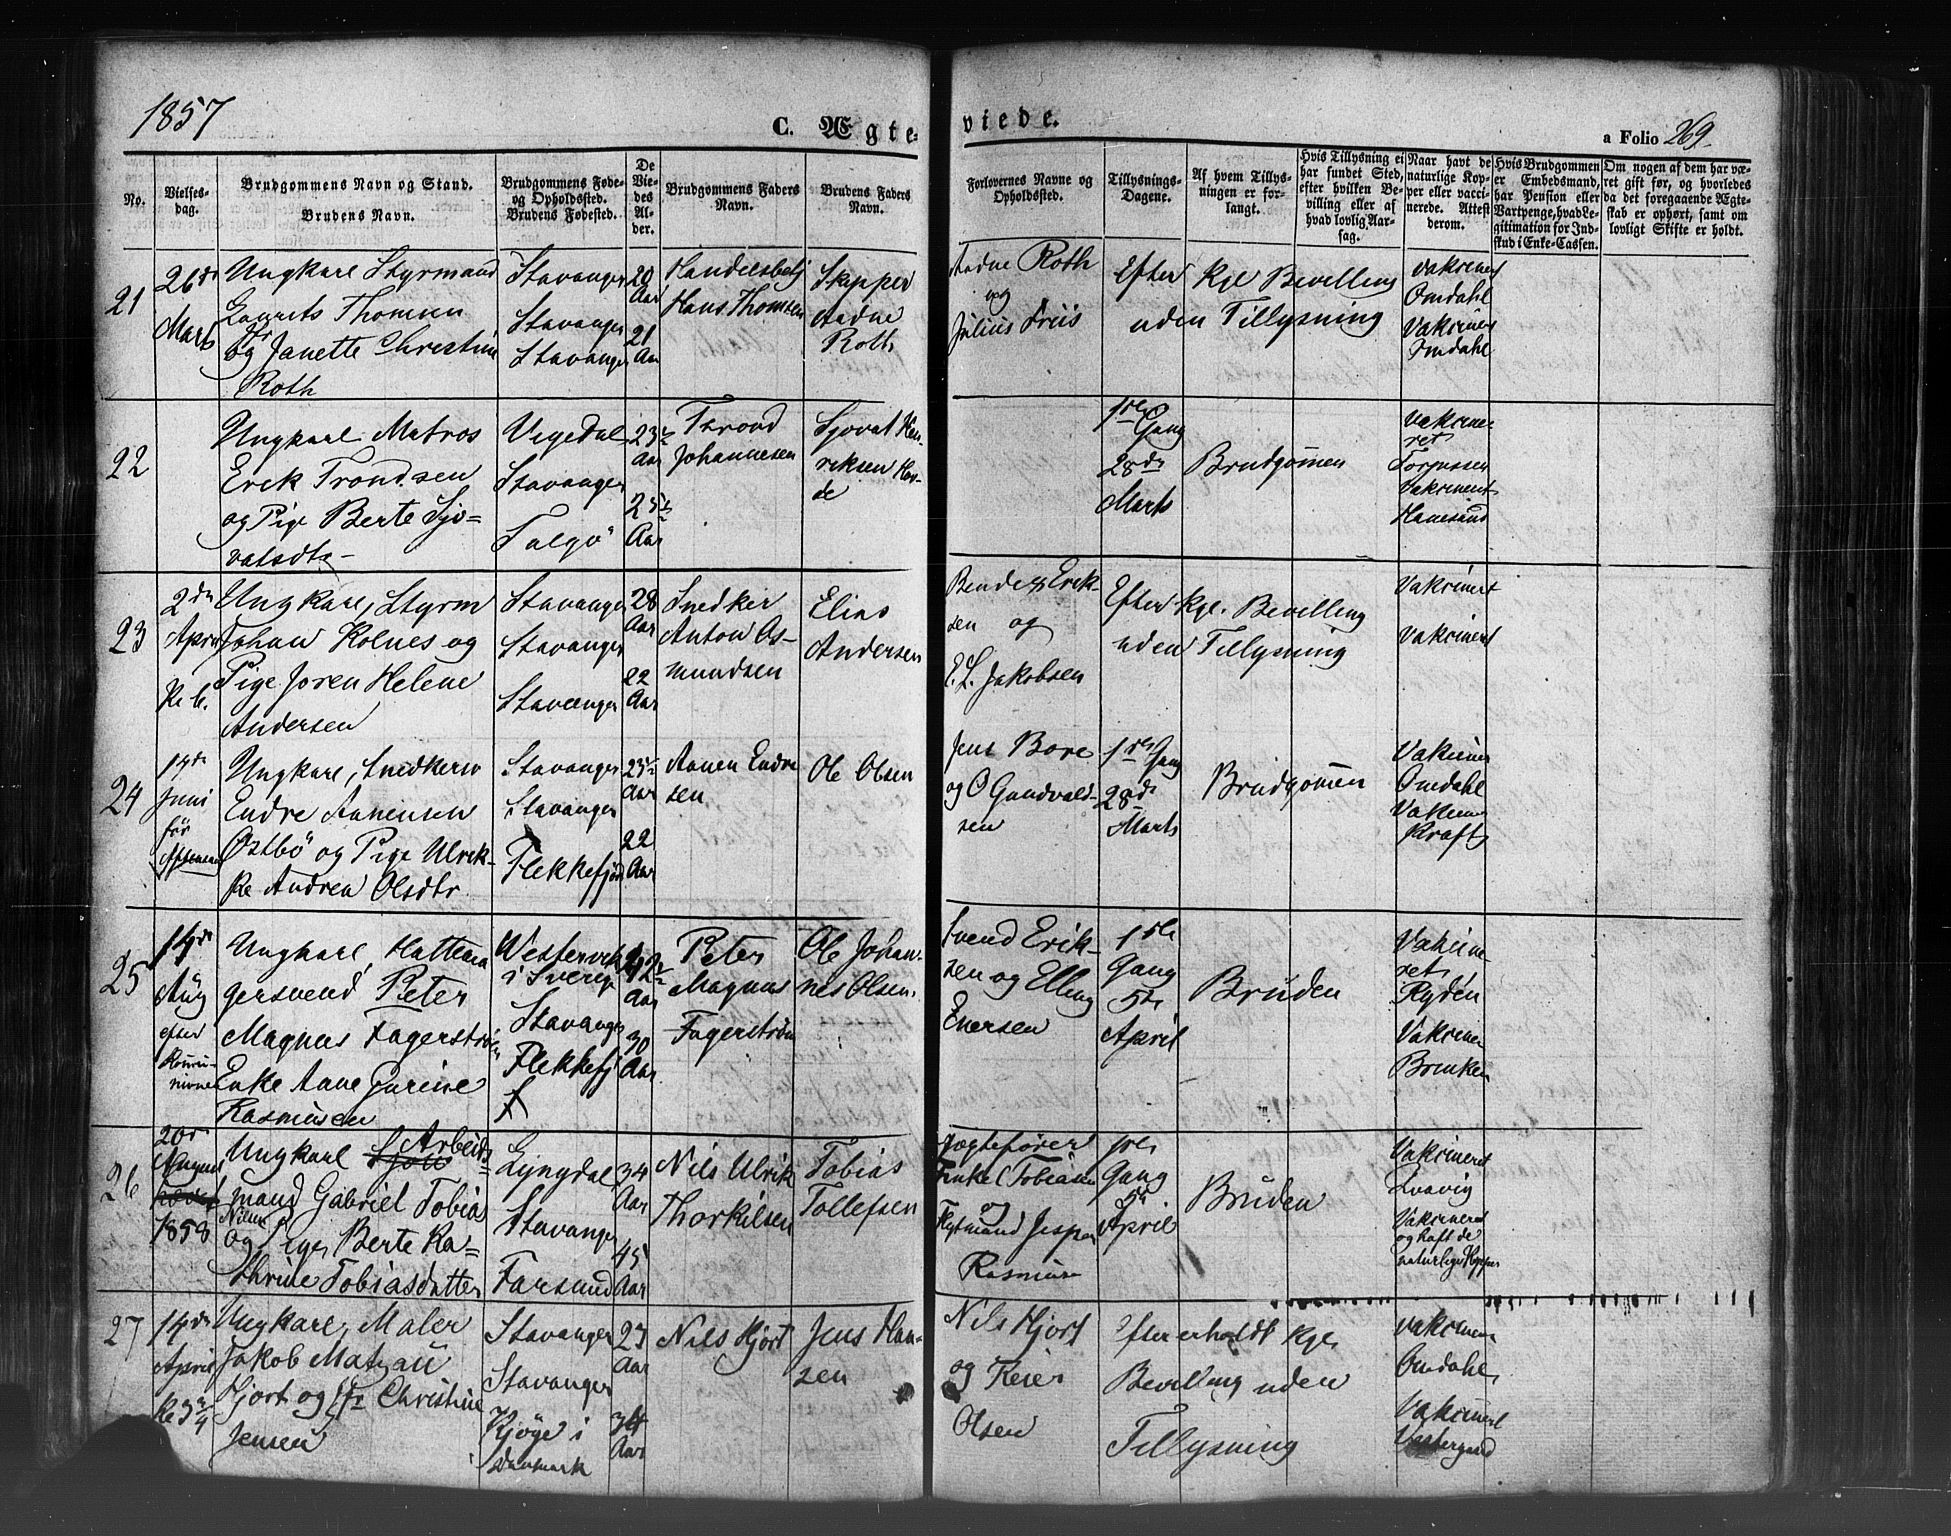 1857
C. Ægte-
viede.
a Folio 269.
No.
Vielses-
dag.
Brudgommens Navn og Stand.
Brudens Navn.
Brudgommens Føde-
og Opholdssted.
Brudens Fødested.
De
Vie-
des
Al-
der.
Brudgommens Faders
Navn.
Brudens Faders
Navn.
Forlovernes Navne og
Opholdssted.
Tillysnings-
Dagene.
Af hvem Tillys-
ningen er for-
langt.
Hvis Tillysning ei
har fundet Sted,
efter hvilken Be-
villing eller af
hvad lovlig Aar-
sag.
Naar havt de
naturlige Kop-
per eller vacci-
nerede. Attest
derom.
Hvis Brudgommen
er Embedsmand,
har Pension eller
Vartpenge, hvad Le-
gitimation for Ind-
skud i Enke-Cassen.
Om nogen af dem har væ-
ret gift før, og hvorledes
da det foregaaende Ægte-
skab er ophørt, samt om
lovligt Skifte er holdt.
21
26de
Marts
Ungkarl Styrmand
Laurits Thomsen
og Janette Christine
Roth
Stavanger
Stavanger
Stavanger
20
Aar
21
Aar
Handelsbetj
Hans Thomsen
Skipper
Aadne
Roth
Aadne Roth
og
Julius Friis
Efter kgl Bevilling
uden Tillysning
Vakcineret
Omdahl
Vakcineret
Omdahl
22
Ungkarl Matros
Erik Trondsen
og Pige Berte Sjo-
vatsdtr
Stavanger
Talgö
23
Aar
25
Aar
Trond
Johannesen
Sjovat Hen-
riksen
1ste Gang
28de
Marts
Brudgommen
Vakcine-
ret
Vakcineret
23
2den
April
Kl 6.
Ungkarl, Styrm
Johan Kolnes og
Pige Joren Helene
Andersen
Stavanger
Stavanger
Stavanger
28
Aar
22
Aar
Snedker
Anton As-
mundsen
Elias
Andersen
Erik-
sen og
E. L. Jakobsen
Efter kgl. Bevilling
uden Tillysning
Vakcineret
Vakcineret
24
14de
Juni
før
Aftensang
Ungkarl, Snedkersv
Endre Aanensen
Østbö og Pige Ulrik-
ke Andrea Olsdtr
Stavanger
Stavanger
Flekkefjord
25
Aar
22
Aar
Aanen Endre
sen
Ole Olsen
Jens Bore
og O Gundvald-
sen
1ste Gang
28de
Marts
Brudgommen
Vakcineret
Omdahl
Vakcineret
Kraft
25
14de
Aug
efter
Ungkarl, Hattema
gersvend Peter
Magnus Fagerström
Enke Aane Gurine
Rasmusen
Westervik
i Sverig
Stavanger
Flekkefj
42
Aar
30
Aar
Peter
Magnus
Fagerström
Ole Johan-
nes Olsen.
Svend Erik-
sen og Elling
Enersen
1ste
Gang
5te
April
Bruden
Vakcine-
ret
Rydén
Vakcineret
Brinken
26
20de
August
1858
Ungkarl Arbeids-
mand Gabriel Tobias
Nilsen
og Pige Berte Ka-
thrine Tobiasdatter
Lyngdal
Stavanger
Farsund
34
Aar
45
Aar
Nils Ulrik
Thorkilsen
Tobias
Tollefsen
Jægtefører
og
Jesper
Rasmusen
1ste
Gang
5te
April
Bruden
Vakcineret
Vakcineret
og haft de
naturlige Kopper
27
14de
April
Kl 3 3/4
Ungkarl, Maler
Jakob Matzau
Hjort og Jfr Christine
Jensen
Stavanger
Stavanger
Kjøge i
Danmark
23
Aar
34
Aar
Nils Hjort
Jens Han-
sen
Nils Hjort
og Reier
Olsen
Efter erholdt kgl
Bevilling uden
Tillysning
Vakcineret
Omdahl
Vakcineret
Vestergaard